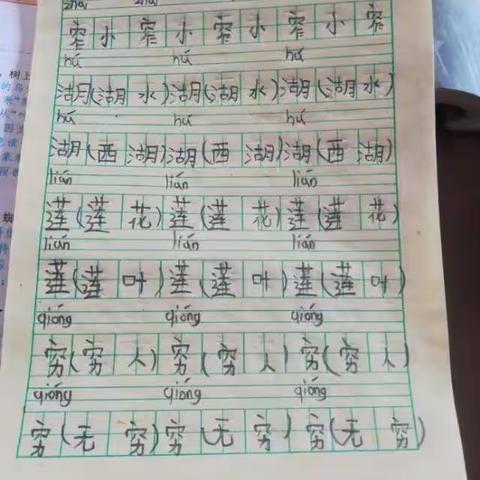 窄 小 窄 小 窄 小 窄
hú hú hú
湖(湖 水)湖(湖 水)湖(湖 水)
hú hú hú
湖(西 湖)湖(西 湖)湖(西 湖)
lián lián lián
莲(莲 花)莲(莲 花)莲(莲 花)
lián lián lián
莲(莲 叶)莲(莲 叶)莲(莲 叶)
qióng qióng qióng
穷(穷 人)穷(穷 人)穷(穷 人)
qióng qióng qióng
穷(无 穷)穷(无 穷)穷(无 穷)